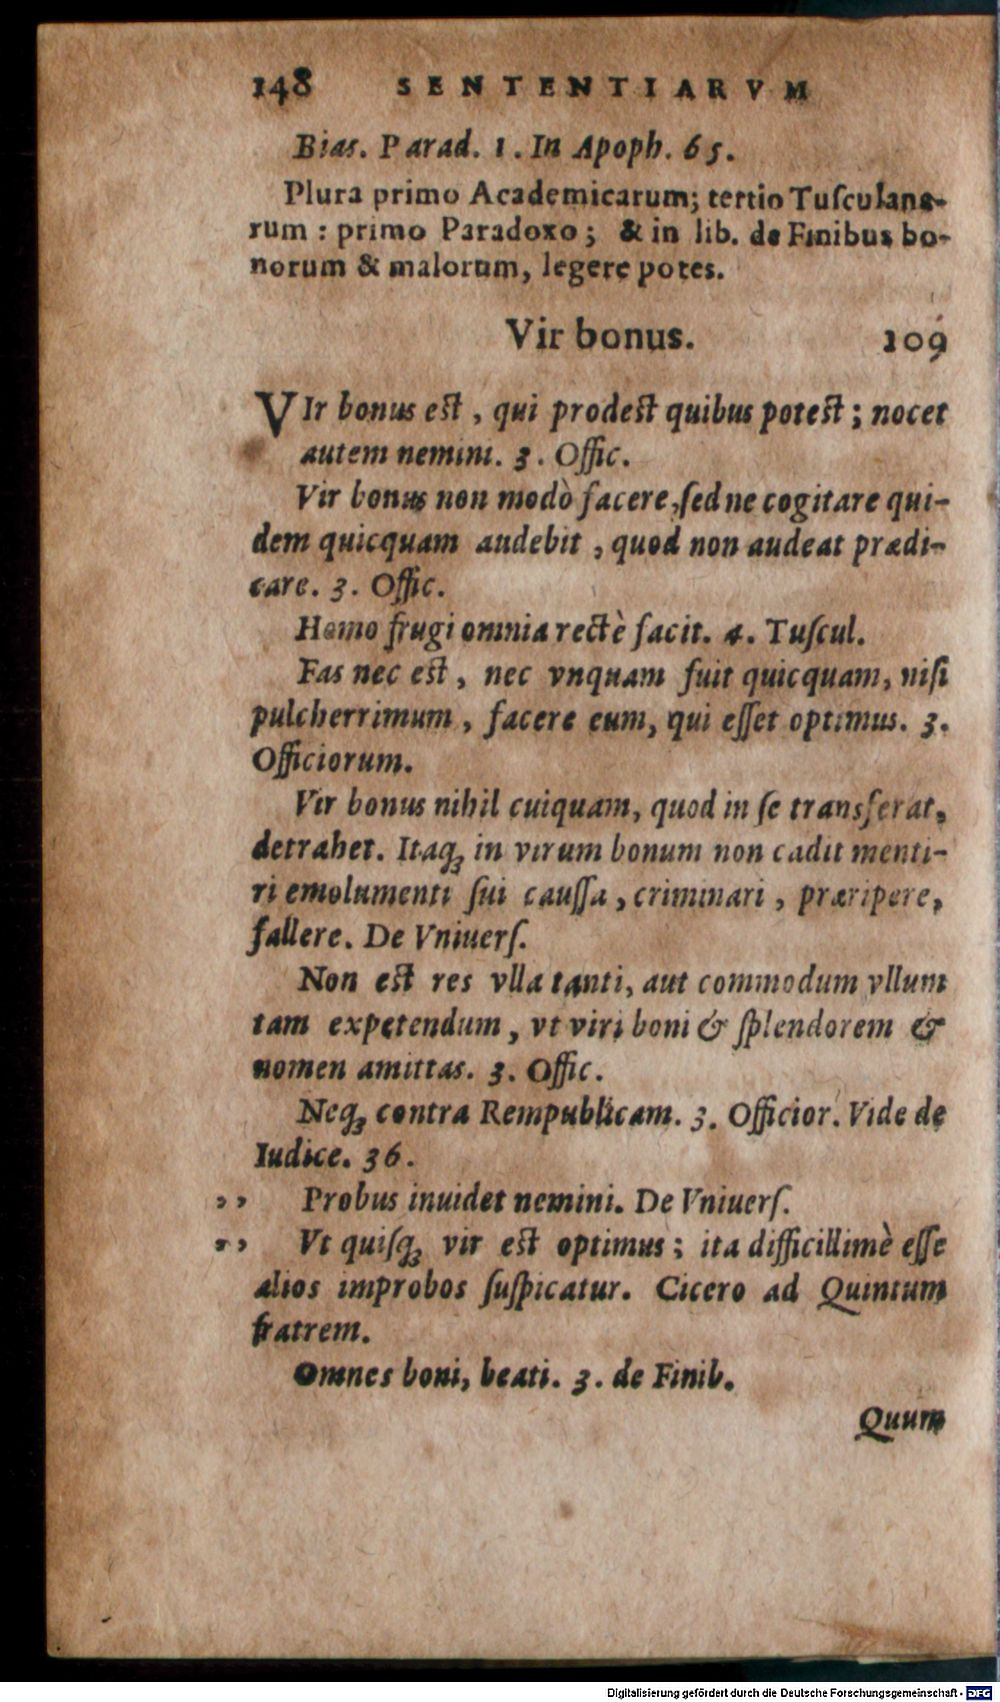 148 SENTENTIARVM
Bias. Parad. 1. In Apoph. 65.
Plura primo Academicarum; tertio Tuſculana-
rum: primo Paradoxo; & in lib. de Finibus bo-
norum & malorum, legere potes.
Vir bonus. 109
VIr bonus eſt, qui prodeſt quibus poteſt; nocet
autem nemini. 3. Offic.
Vir bonus non modò facere, ſed ne cogitare qui-
dem quicquam audebit, quod non audeat prædi-
care. 3. Offic.
Homo frugi omnia rectè facit. 4. Tuſcul.
Fas nec eſt, nec vnquam fuit quicquam, niſi
pulcherrimum, facere eum, qui eſſet optimus. 3.
Officiorum.
Vir bonus nihil cuiquam, quod in ſe transferat,
detrahet. Itaqꝫ in virum bonum non cadit menti-
ri emolumenti ſui cauſſa, criminari, præripere,
fallere. De Vniuerſ.
Non eſt res vlla tanti, aut commodum vllum
tam expetendum, vt viri boni & ſplendorem &
nomen amittas. 3. Offic.
Neqꝫ contra Rempublicam. 3. Officior. Vide de
Iudice. 36.
,, Probus inuidet nemini. De Vniuerſ.
,, Vt quiſqꝫ vir eſt optimus; ita difficillimè eſſe
alios improbos ſuſpicatur. Cicero ad Quintum
fratrem.
Omnes boni, beati. 3. de Finib.
Quum
Digitalisierung gefördert durch die Deutsche Forschungsgemeinschaft - DFG